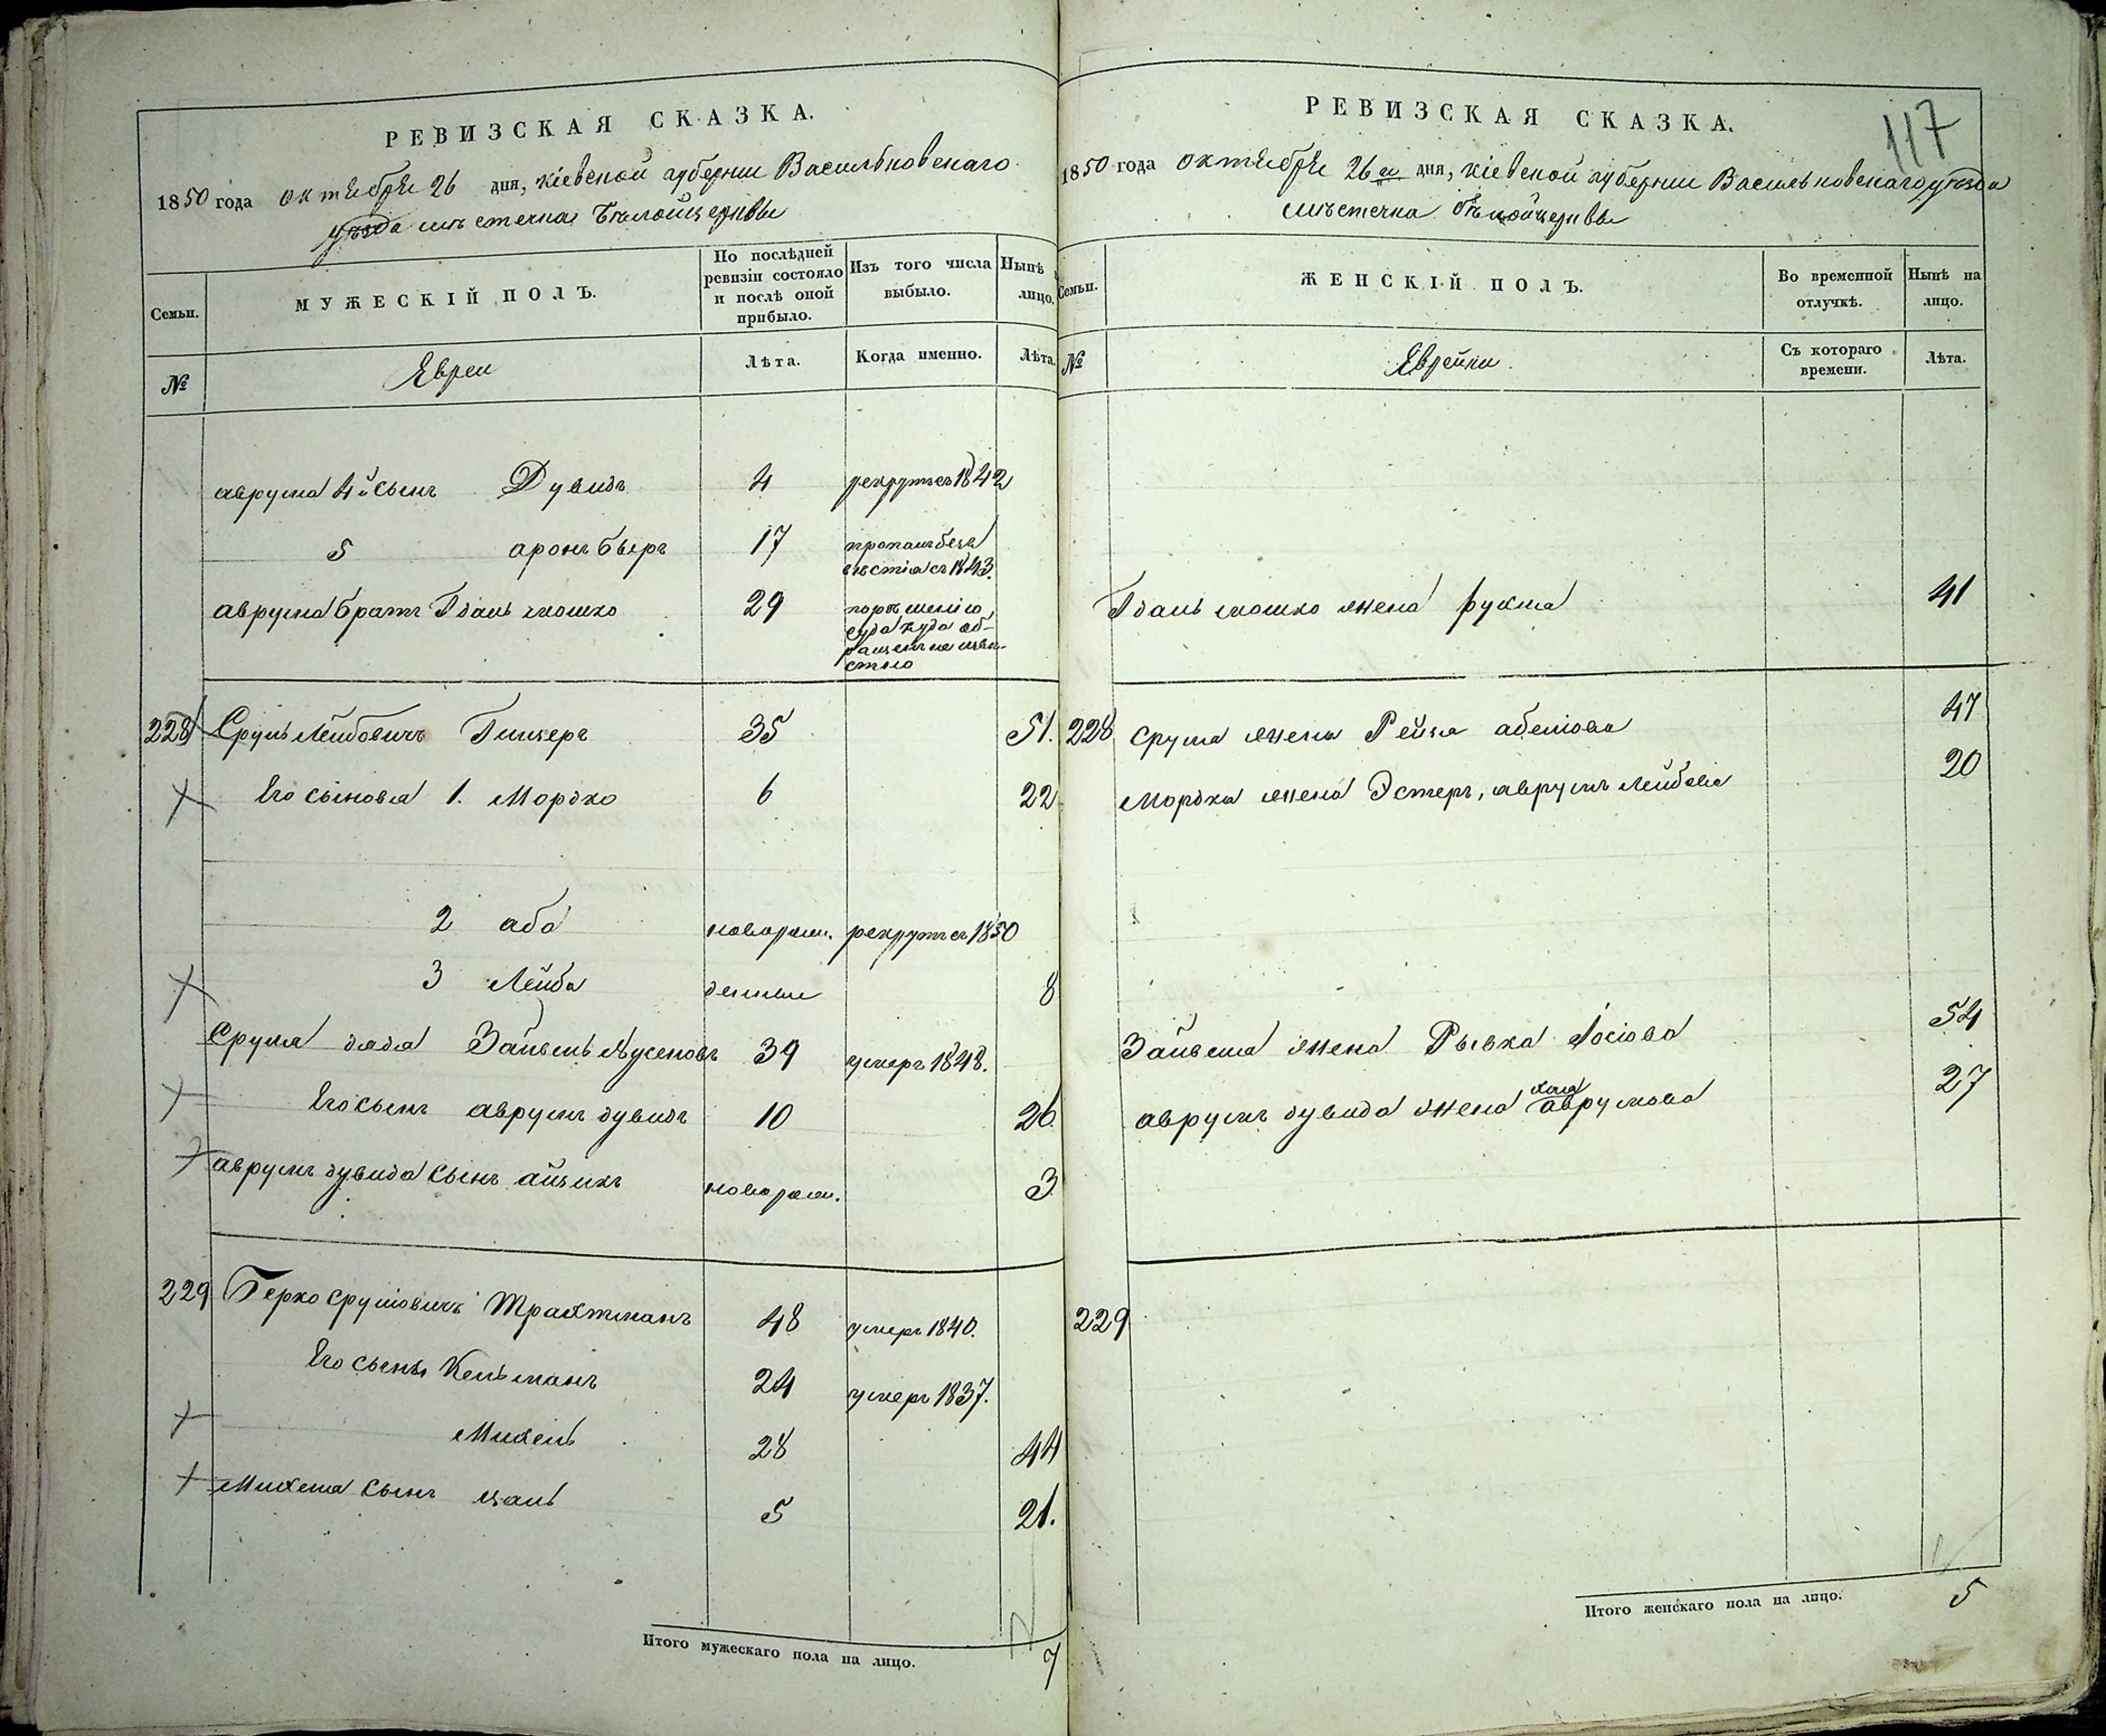 РЕВИЗСКАЯ СКАЗКА.
1850 года октября 26 дня, Кіевской губерніи Васильковскаго
уѣзда мѣстечка Бѣлойцеркви
Семьи.
МУЖЕСКІЙ ПОЛЪ.
По послѣдней ревизіи состояло и послѣ оной прибыло.
Изъ того числа выбыло.
Нынѣ на лицо.
№
Евреи
Лѣта.
Когда именно.
Лѣта.
аврума 4й сынъ Дувидъ 4 рекрутъ съ 1842
5 аронъ беръ 17 пропалъ безъ вѣстіа съ 1843.
аврума братъ Гдаль мошко 29 по рѣшенію суда куда об-
ращенъ не извѣ-
стно
228 Сруль Лейбовичъ 35 51.
Его сыновья 1. Мордко 6 22
2 аба новорож. рекрутъ съ 1850
3 Лейба 8
Срула дядя 39 умеръ 1848.
Его сынъ аврумъ дувидъ 10 26.
аврумъ дувида сынъ айзикъ новорож. 3
229 Герко Срулiовичъ Трахтманъ 48 умеръ 1840.
Его сыны Кельманъ 24 умеръ 1837.
Михель 28 44
Михеля сынъ 5 21.
Итого мужескаго пола на лицо. 7
117
РЕВИЗСКАЯ СКАЗКА.
1850 года октября 26го дня, Кіевской губерніи Васильковскаго уѣзда
мѣстечка бѣлойцеркви
Семьи.
ЖЕНСКІЙ ПОЛЪ.
Во временной отлучкѣ.
Нынѣ на лицо.
№
Еврейки
Съ котораго времени.
Лѣта.
Гдаль мошко жена фукса 41
228 Срула жена Рейза абелiова 47
Мордка жена Эстеръ, аврумъ Лейбова 20
жена Рывка Iосiова 54
аврумъ дувида жена хая аврумова 27
229
Итого женскаго пола на лицо. 5